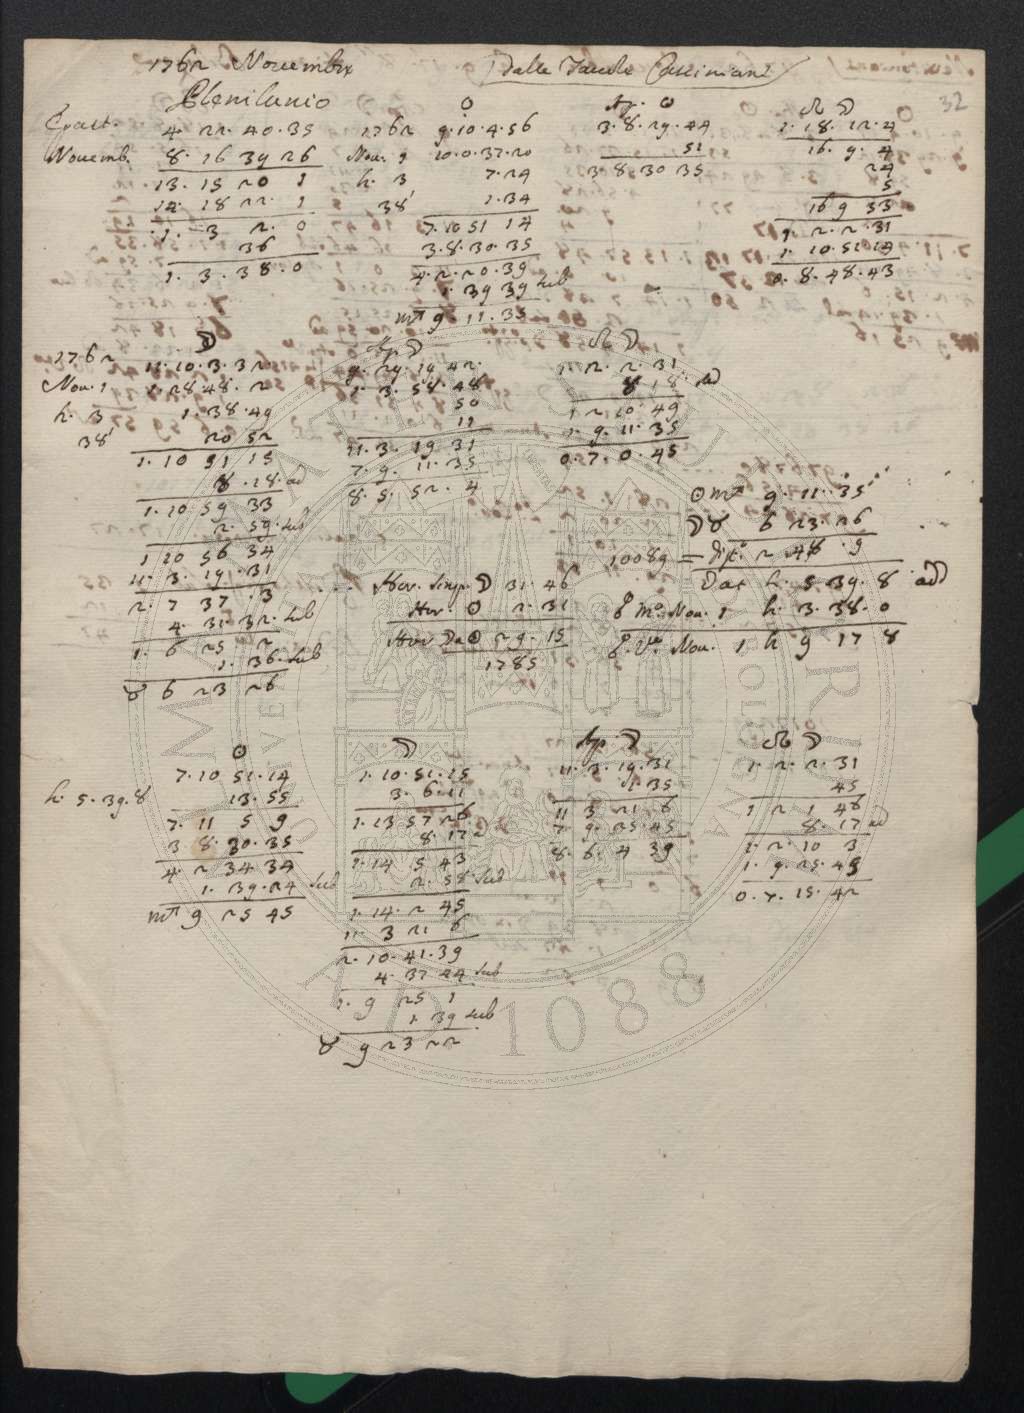 1762 Novembre
Dalle Tavole Cassiniane
32
Plenilunio
Epact. 4. 22. 40. 35
Novemb. 8. 16 39 26
13. 15 20 1
14. 18 22. 1
1. 3 2. 0
36
1. 3. 38. 0
☉
1762 9. 10. 4. 56
Nov. 1 10. 0. 37. 20
h. 3 7. 24
38' 1. 34
7. 10 51 14
3. 8. 30. 35
4. 2. 20. 39
1. 39 39 sub
♏ 9. 11. 35
Ap. ☉
3. 8. 29. 44
51
3 8. 30 35
☊ ☽
1. 18. 12. 4
16. 9. 4
24
5
16 9 33
1. 2. 2. 31
1. 10. 51. 14
0. 8. 48. 43
☽
1762 11. 10. 3. 32
Nov. 1 1. 28 48. 2
h. 3 1. 38. 49
38' 20 52
1. 10 51 15
8. 18. ad
1. 10 59 33
2. 59. sub
1 10 56 34
11. 3. 19. 31
2. 7 37. 3
4. 31. 32. sub
1. 6 25 2
1. 36. sub
♉ 6 23 26
Ap. ☽
9. 29. 19. 42
1. 3. 58. 48
50
11
11. 3. 19 31
7. 9. 11. 35
8. 5. 52. 4
☊ ☽
1. 2. 2. 31
8 18. ad
1 2 10. 49
1. 9. 11. 35
0. 7. 0. 45
☉ ♏ 9 11. 35
☽ ♉ 6 23. 26
10089 = dist. 2 48. 9
Dat h. 5 39. 8 add
T. Mo. Nov. 1 h. 3. 38. 0
T. Vo. Nov. 1 h 9 17 8
Hor. simp. ☽ 31. 46
Hor. ☉ 2. 31
Hor ☽ a ☉ 29. 15
1785
☉
7. 10 51. 14
h. 5. 39. 8 13. 55
7. 11 5 9
3 8. 30. 35
4. 2 34 34
1. 39. 24 sub
♏ 9 25 45
☽
1. 10. 51. 15
3. 6. 11
1. 13 57 26
8. 17
1. 14 5 43
2. 58 sub
1. 14. 2 45
11. 3 21 6
2. 10. 41. 39
4. 37 44 sub
1. 9 25 1
1 39 sub
♉ 9 23 22
Ap. ☽
11. 3. 19. 31
1. 35
11 3 21 6
7 9. 25. 45
8. 6. 4 39
☊ ☽
1. 2. 2. 31
45
1 2 1 46
8. 17 ad
1. 2. 10 3
1. 9. 25. 45
0. 7. 15. 42
ALMA MATER STUDIORUM
UNIVERSITÀ DI BOLOGNA
A.D. 1088